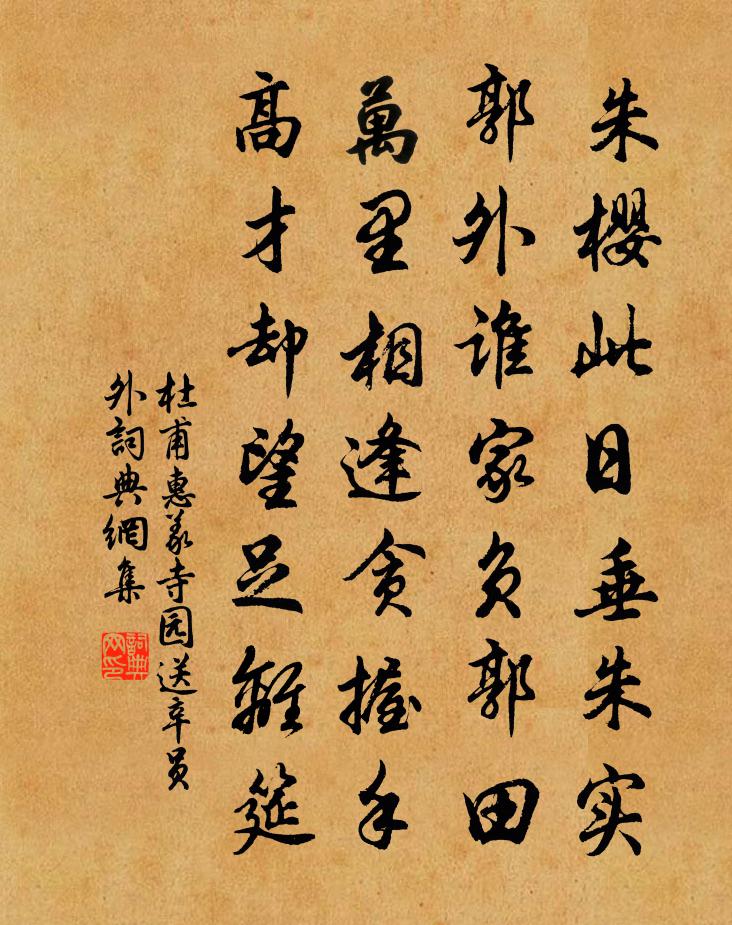 朱櫻此日垂朱实
郭外谁家负郭田
萬里相逢贪握手
高才却望足離筵
杜甫惠义寺园送辛员
外詞典網集
詞典
网印